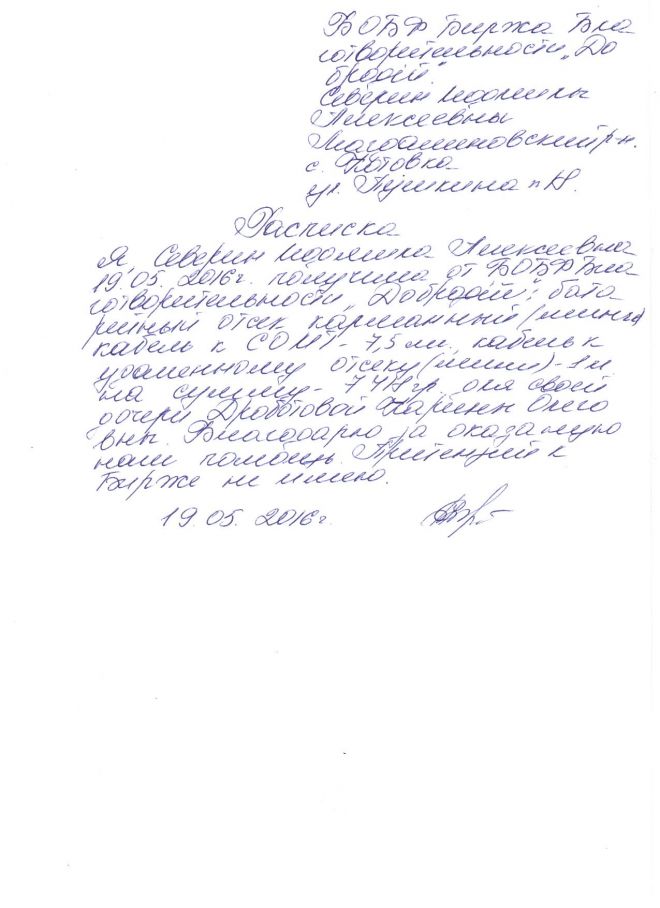 ВОБФ Биржа Бла
готворительности „До
бродій"
Северин Людмилы
Алексеевны
Магдалиновский р-н.
с. Котовка
ул. Пушкина
Расписка
Я, Северин Людмила Алексеевна
19.05.2016г. получила от ВОБФ Бла
готворительности „Добродій": бата
рейный отсек карманный (мини)
кабель к COMT- 7,5 м, кабель к
удаленному отсеку (мини)-1м
на сумму- гр. для своей
дочери Дроботовой Карины Олего
вны. Благодарю за оказаную
нам помощь. Притензий к
Бирже не имею.
19.05.2016г.